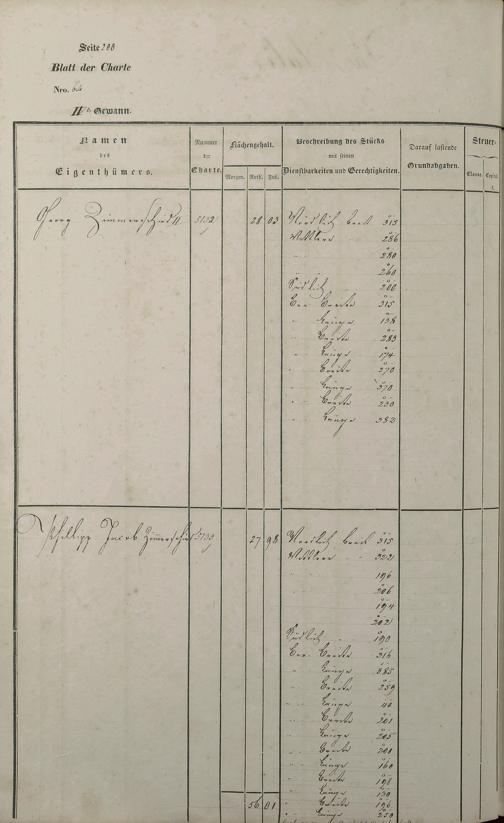 Seite 288
Blatt der Charte
Nro.
IIte Gewann.
Namen des Eigenthümers.
Nummer der Charte.
Flächengehalt.
Morgen. Ruth. Fuß.
Beschreibung des Stücks mit seinen Dienstbarkeiten und Gerechtigkeiten.
Darauf lastende Grundabgaben.
Steuer-
Classe. Capital.
Georg Zimmerschied II 5132 28 03 Nördlich breit 315
Mittlere 286
280
260
Südlich 200
Breite 315
Länge 138
Breite 283
Länge 174
Breite 270
Länge 370
Breite 230
Länge 382
Philipp Jacob Zimmerschied 5133 27 98 Nördlich breit 315
Mittlere 322
196
206
194
202
Südlich 190
Breite 316
Länge 385
Breite 259
Länge 40
Breite 201
Länge 205
Breite 200
Länge 160
Breite 198
Länge 130
56 01 Breite 196
Länge 250